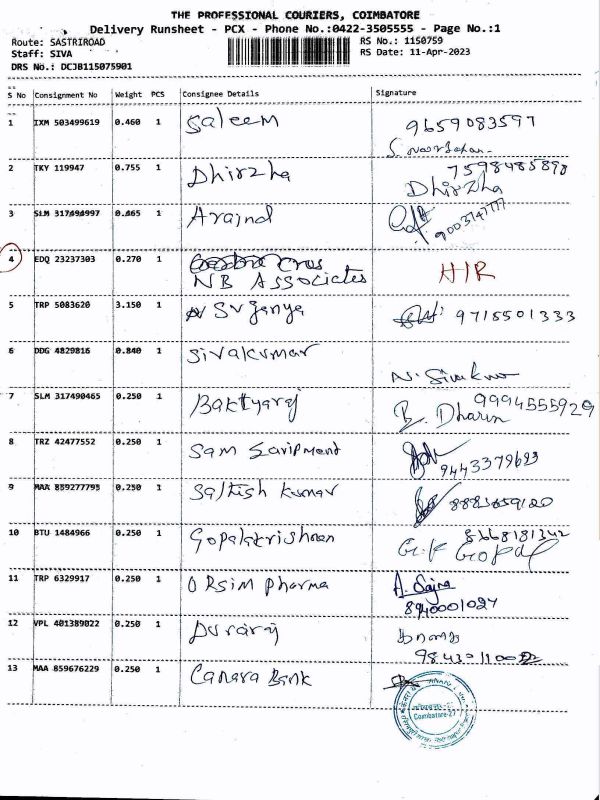 THE PROFESSIONAL COURIERS, COIMBATORE
Delivery Runsheet - PCX - Phone No.:0422-3505555 - Page No.:1
Route: SASTRIROAD
RS No.: 1150759
Staff: SIVA
RS Date: 11-Apr-2023
DRS No.: DCJB115075901
S No Consignment No Weight PCS Consignee Details Signature
1 IXM 503499619 0.460 1 Saleem 9659083597
2 TKY 119947 0.755 1 Dhirzha 7598485898
Dhirzha
3 SLM 317494997 0.465 1 Aravind 9003747777
4 EDQ 23237303 0.270 1 NB Associates H/R
5 TRP 5083620 3.150 1 Suganya 9715501333
6 DDG 4829816 0.840 1 Sivakumar
N. Sivakumar
7 SLM 317490465 0.250 1 Baktyaraj 9994555929
B. Dharun
8 TRZ 42477552 0.250 1 Sam Saripment
9443379693
9 MAA 859277795 0.250 1 Sathish Kumar 8883659120
10 BTU 1484966 0.250 1 Gopalakrishnan 8668181342
G.K Gopal
11 TRP 6329917 0.250 1 ORSim Pharma A. Sajna
8940001027
12 VPL 401389022 0.250 1 Duraraj
9843011002
13 MAA 859676229 0.250 1 Canara Bank
Coimbatore-27